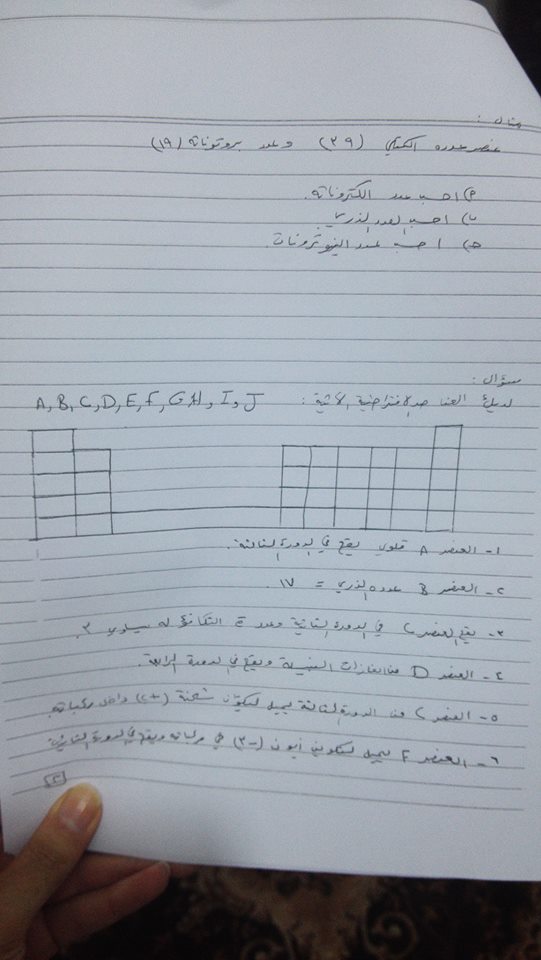 مثال :
عنصر عدده الكتلي (٣٩) وعدد بروتوناته (١٩)
أ) احسب عدد الكتروناته.
ب) احسب العدد الذري.
ج) احسب عدد النيوترونات.
سؤال :
لديك العناصر الافتراضية الآتية : A, B, C, D, E, F, G, H, I, J
١- العنصر A قلوي يقع في الدورة الثالثة.
٢- العنصر B عدده الذري = ١٧.
٣- يقع العنصر C في الدورة الثانية وعدد e التكافؤ له يساوي ٣.
٤- العنصر D من الغازات النبيلة ويقع في الدورة الرابعة.
٥- العنصر C من الدورة الثالثة يميل لتكوين شحنة (+٢) داخل مركباته.
٦- العنصر F يميل لتكوين أيون (-٣) في مركباته ويقع في الدورة الثانية